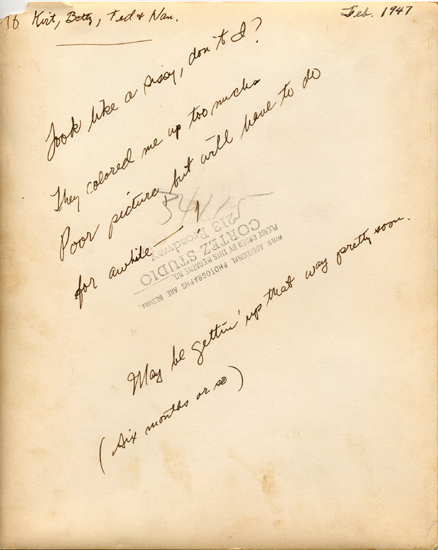 To Kirt, Betty, Ted & Nan.
Feb. 1947
Look like a sissy, don't I?
They colored me up too much
Poor picture but will have to do
for awhile—!
34125
WHEN ADDITIONAL PHOTOGRAPHS ARE DESIRED
PLEASE ORDER BY THIS NEGATIVE NO.
CORTEZ STUDIO
213 Broadway
May be gettin' up that way pretty soon.
(six months or so)